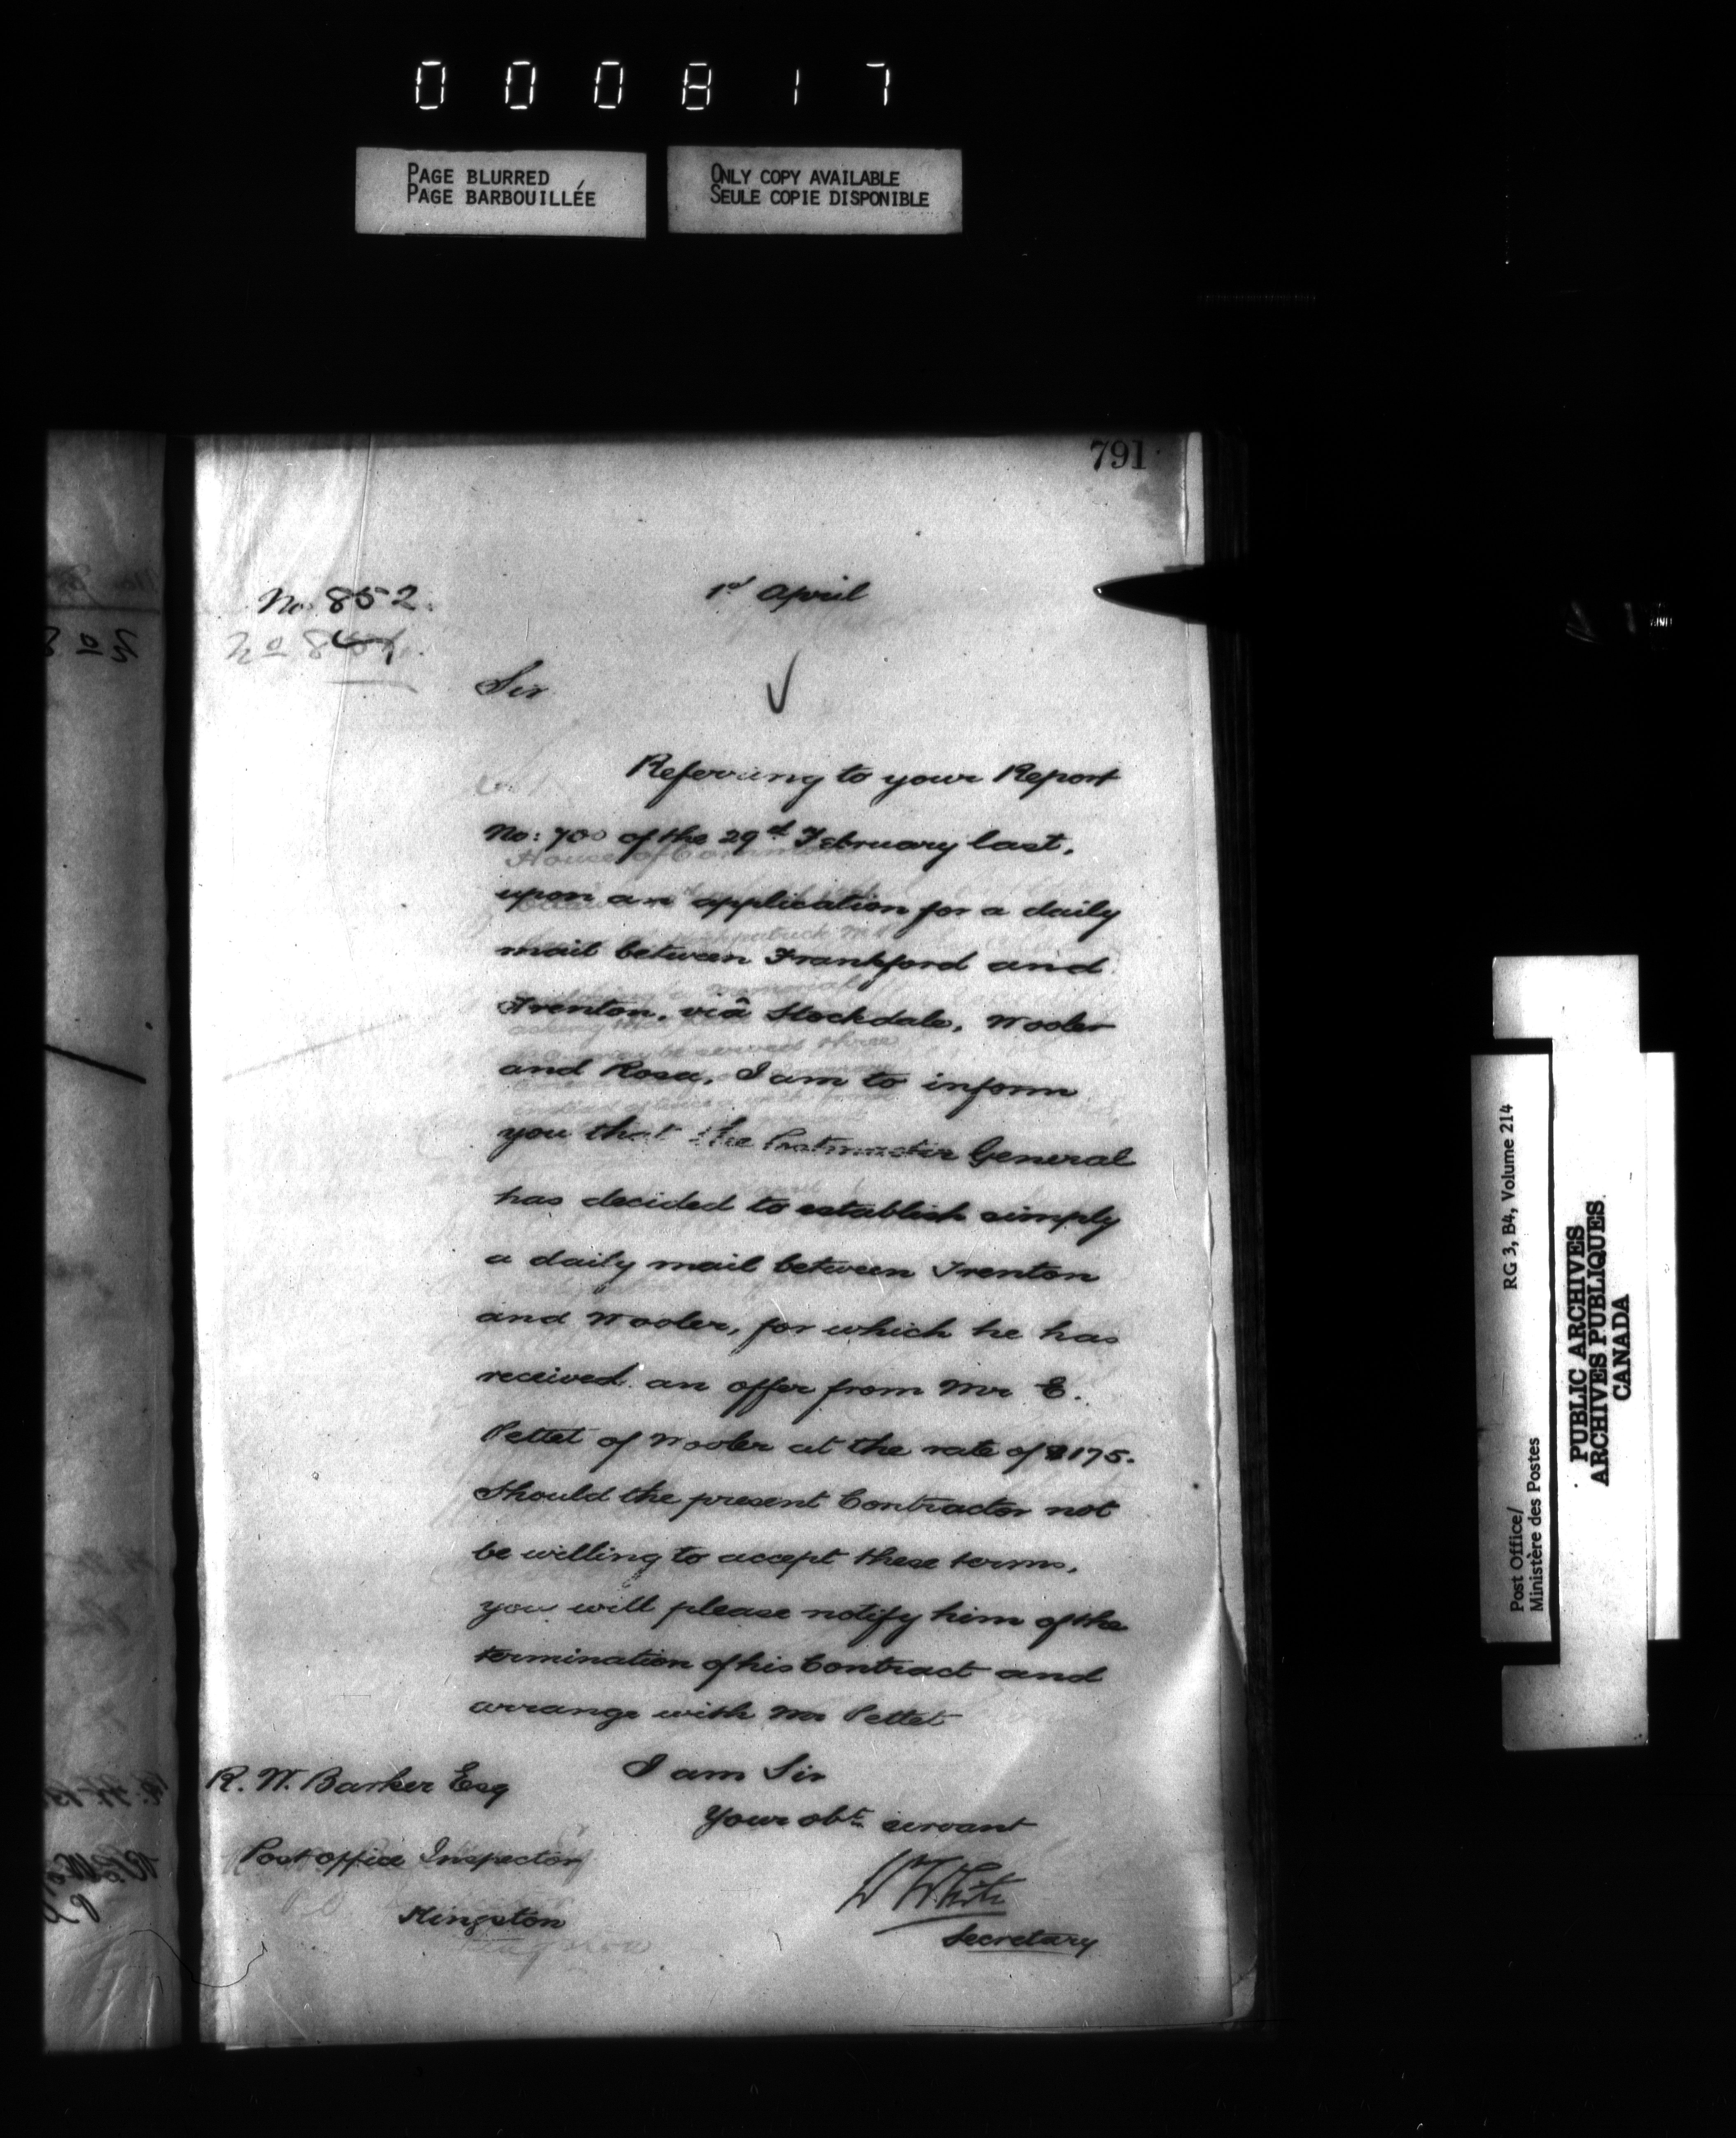 000817
PAGE BLURRED
PAGE BARBOUILLÉE
ONLY COPY AVAILABLE
SEULE COPIE DISPONIBLE
791
No. 852.
1st April
Sir
Referring to your Report
No: 700 of the 29th February last,
upon an application for a daily
mail between Frankford and
Trenton, viâ Stockdale, Wooler
and Rosa, I am to inform
you that the Postmaster General
has decided to establish simply
a daily mail between Trenton
and Wooler, for which he has
received an offer from Mr E.
Pettet of Wooler at the rate of $175.
Should the present Contractor not
be willing to accept these terms,
you will please notify him of the
termination of his Contract and
arrange with Mr Pettet
I am Sir
Your obt. servant
W White
Secretary
R. W. Barker Esq
Post office Inspector
Kingston
Post Office/
Ministère des Postes
RG 3, B4, Volume 214
PUBLIC ARCHIVES
ARCHIVES PUBLIQUES
CANADA